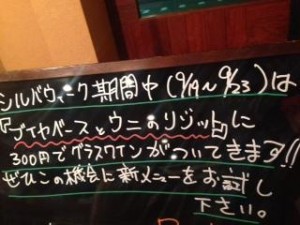 シルバウィーク期間中(9/19~9/23)は
『ブイヤベースとウニのリゾット』に
300円でグラスワインがついてきます!!
ぜひこの機会に新メニューをお試し
下さい。